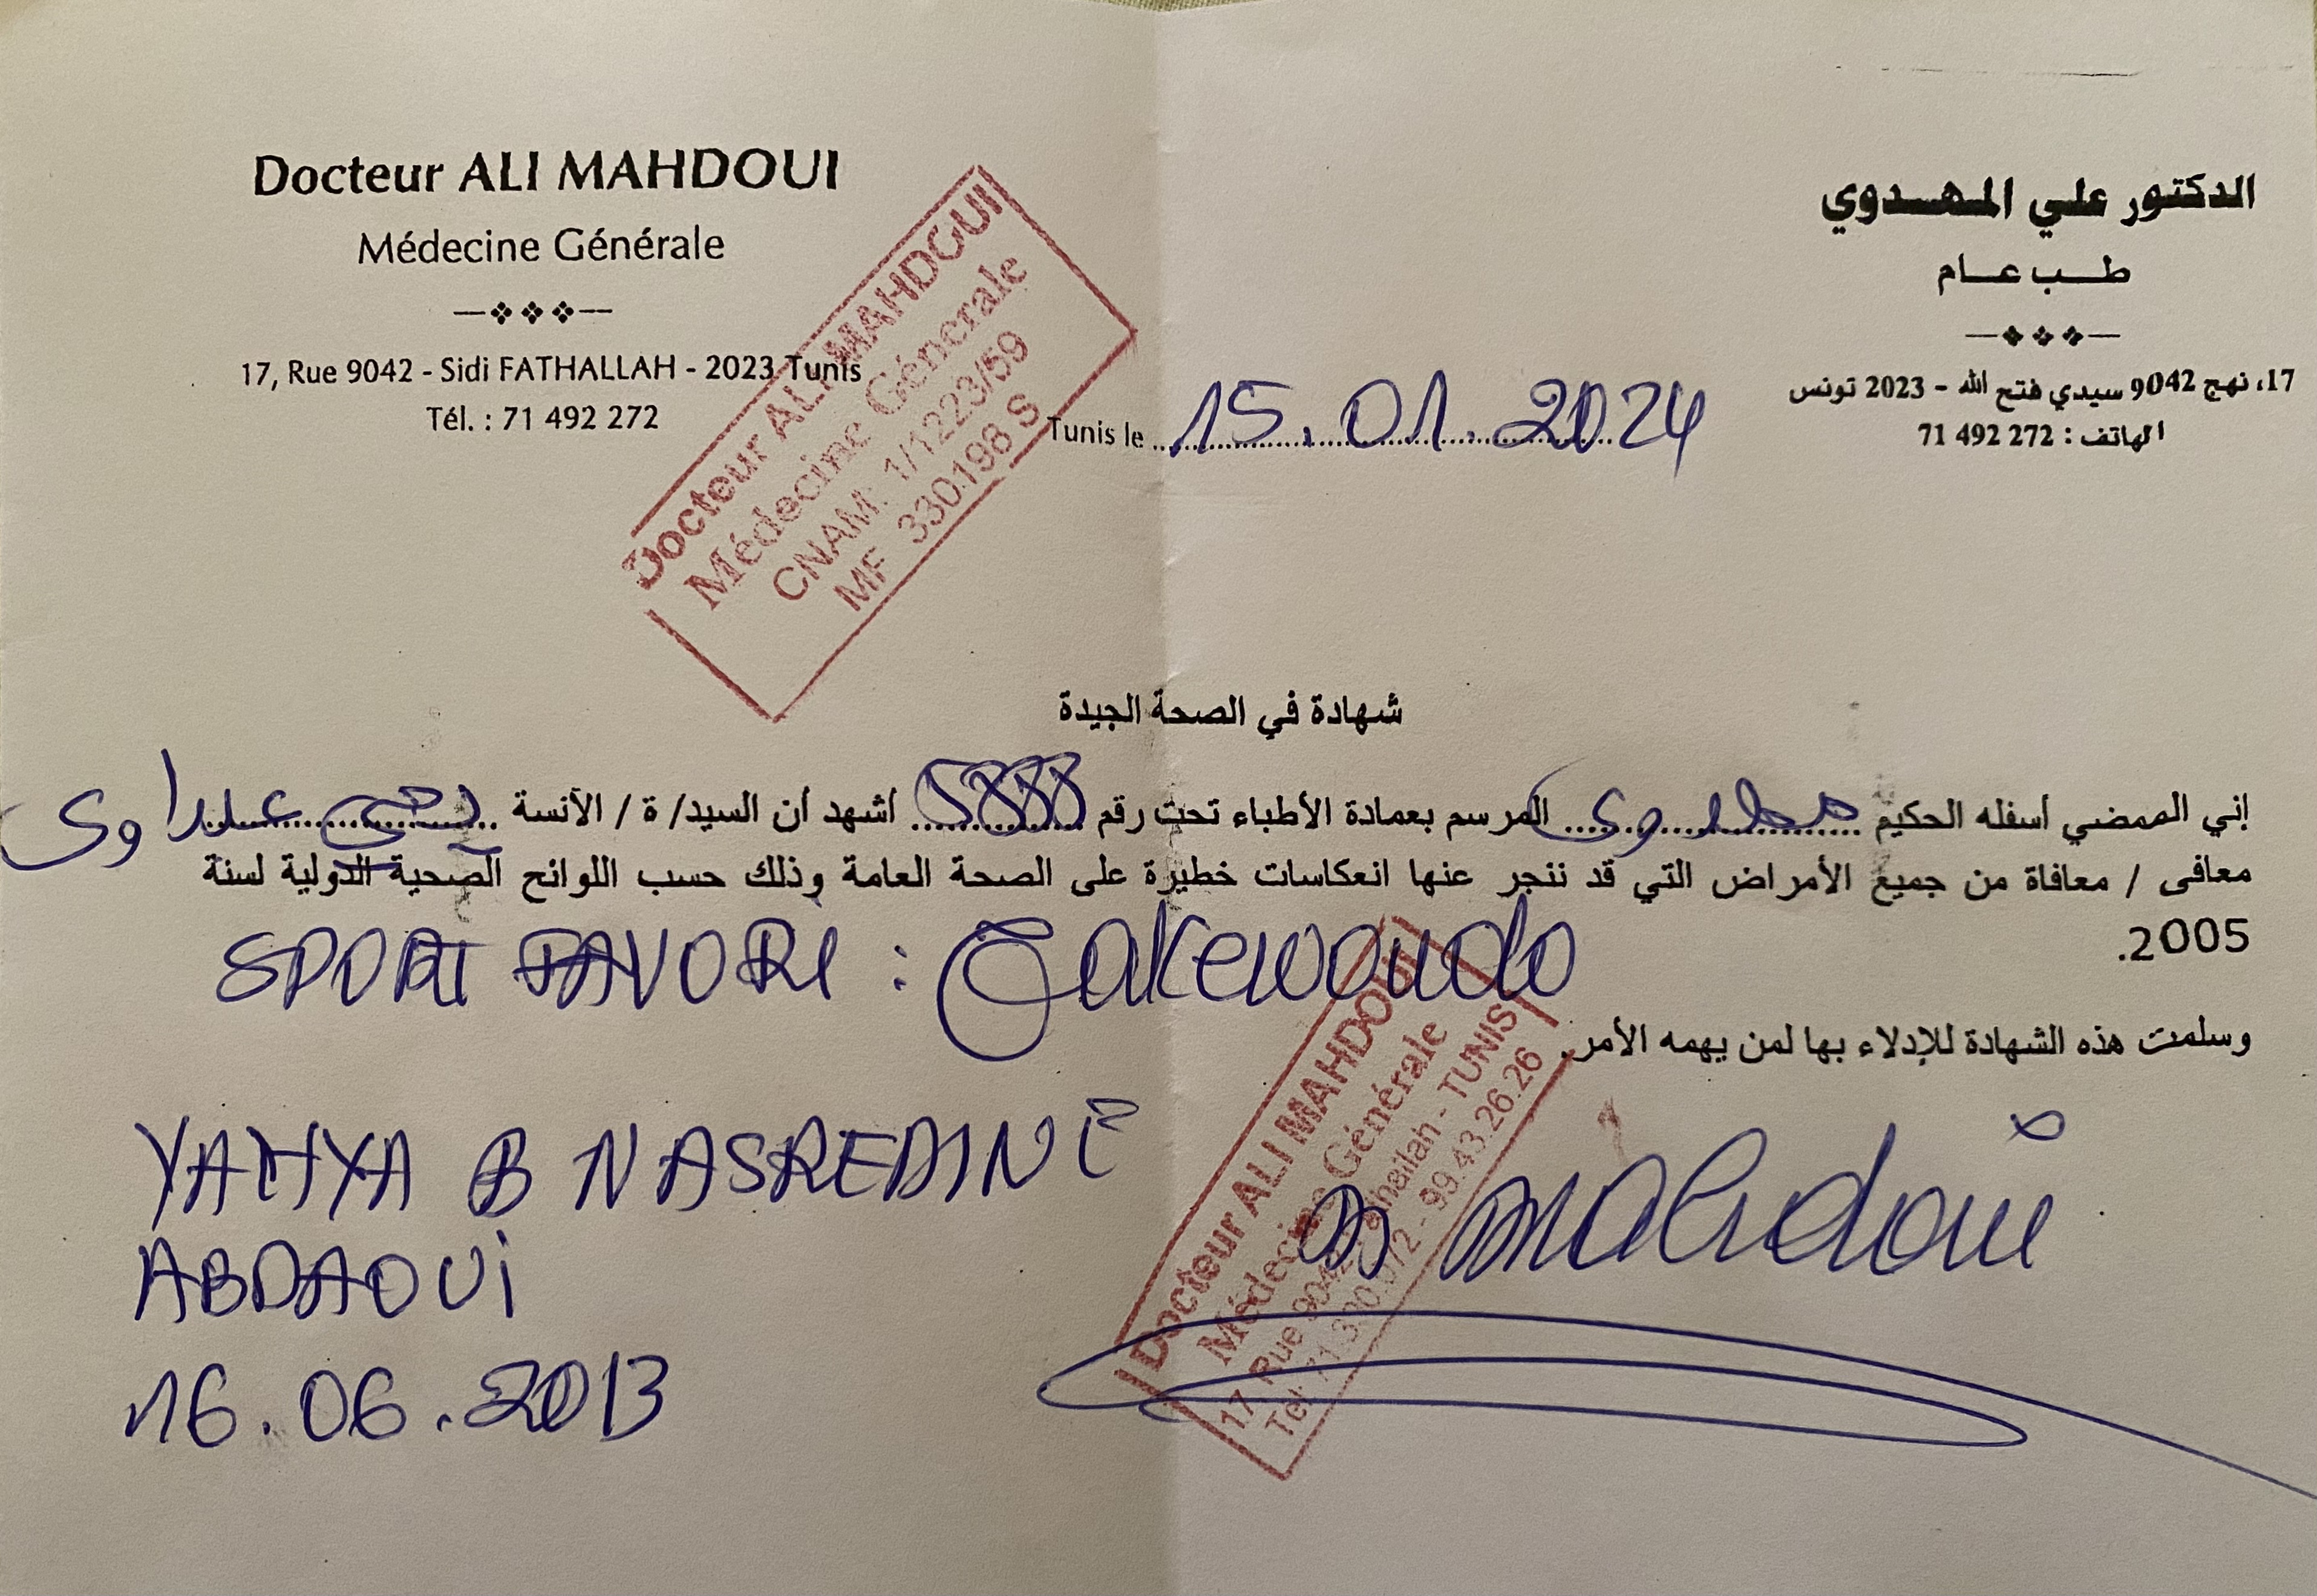 Docteur ALI MAHDOUI
Médecine Générale
17, Rue 9042 - Sidi FATHALLAH - 2023 Tunis
Tél. : 71 492 272
الدكتور علي المهدوي
طب عام
17، نهج 9042 سيدي فتح الله - 2023 تونس
الهاتف : 272 492 71
Docteur ALI MAHDOUI
Médecine Générale
CNAM: 1/1223/59
MF 330198 S
Tunis le 15.01.2024
شهادة في الصحة الجيدة
إني الممضي أسفله الحكيم مهداوي المرسم بعمادة الأطباء تحت رقم 5888 أشهد أن السيد/ ة / الآنسة يحي عبداوي
معافى / معافاة من جميع الأمراض التي قد ننجر عنها انعكاسات خطيرة على الصحة العامة وذلك حسب اللوائح الصحية الدولية لسنة
2005.
SPORT FAVORI : Taekwoudo
وسلمت هذه الشهادة للإدلاء بها لمن يهمه الأمر.
YAHYA B NASREDINE
ABDAOUI
16.06.2013
Dr Mahdoui
Docteur ALI MAHDOUI
Médecine Générale
17 Rue 9042 - TUNIS
Tel: 99.43.26.26